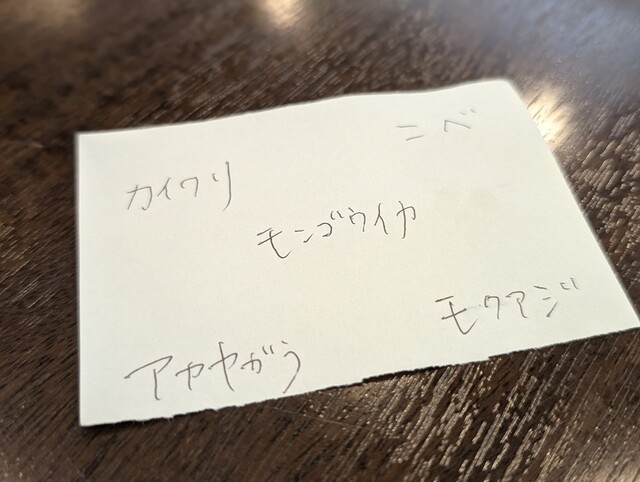 ニベ
カイワリ
モンゴウイカ
モクアジ
アカヤガラ